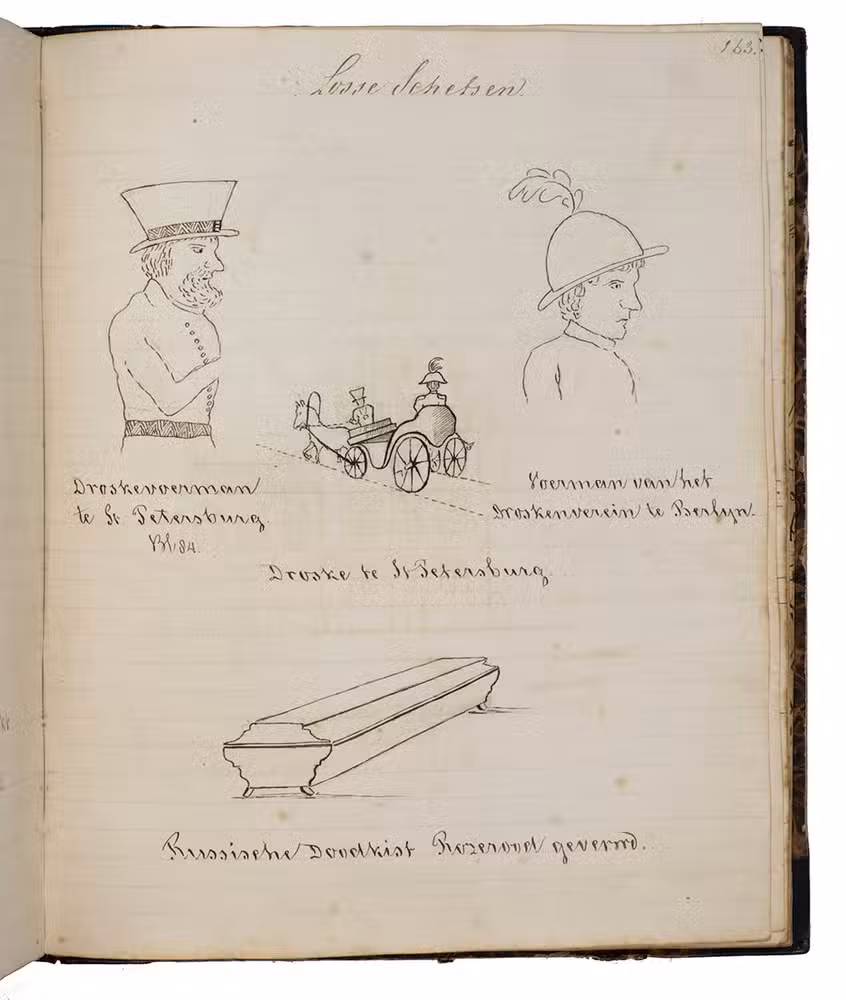 163.
Losse Schetsen.
Droskevoerman
te St Petersburg.
Bl. 84.
Voerman van het
Droskenverein te Berlyn.
Droske te St Petersburg.
Russische Doodkist Rozerood geverwd.